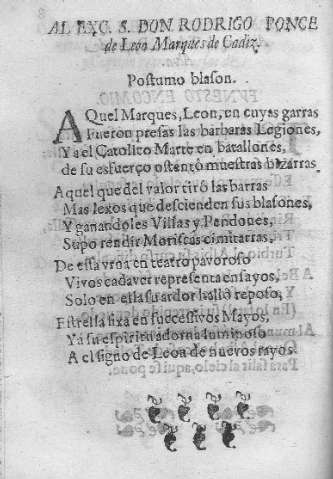 AL EXC. S. DON RODRIGO PONCE
de Leon Marques de Cadiz.
Postumo blason.
AQuel Marques, Leon, en cuyas garras
Fueron presas las barbaras Legiones,
Y a el Catolico Marte en batallones,
de su esfuerço ostentò muestras bizarras
Aquel que del valor tirò las barras
Mas lexos que descienden sus blasones,
Y ganandoles Villas y Pendones,
Supo rendir Moriscas cimitarras,
De essa vrna en teatro pavoroso
Vivos cadaver representa ensayos,
Solo en ella su ardor hallò reposo,
Estrella fixa en successivos Mayos,
Yà su espiritu adorna luminoso
A el signo de Leon de nuevos rayos.